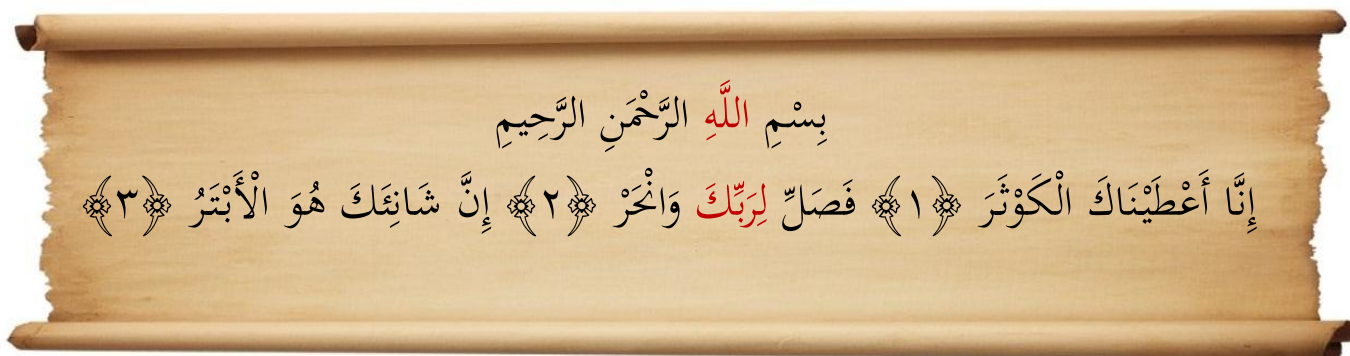 بِسْمِ اللَّهِ الرَّحْمَنِ الرَّحِيمِ
إِنَّا أَعْطَيْنَاكَ الْكَوْثَرَ ﴿١﴾ فَصَلِّ لِرَبِّكَ وَانْحَرْ ﴿٢﴾ إِنَّ شَانِئَكَ هُوَ الْأَبْتَرُ ﴿٣﴾